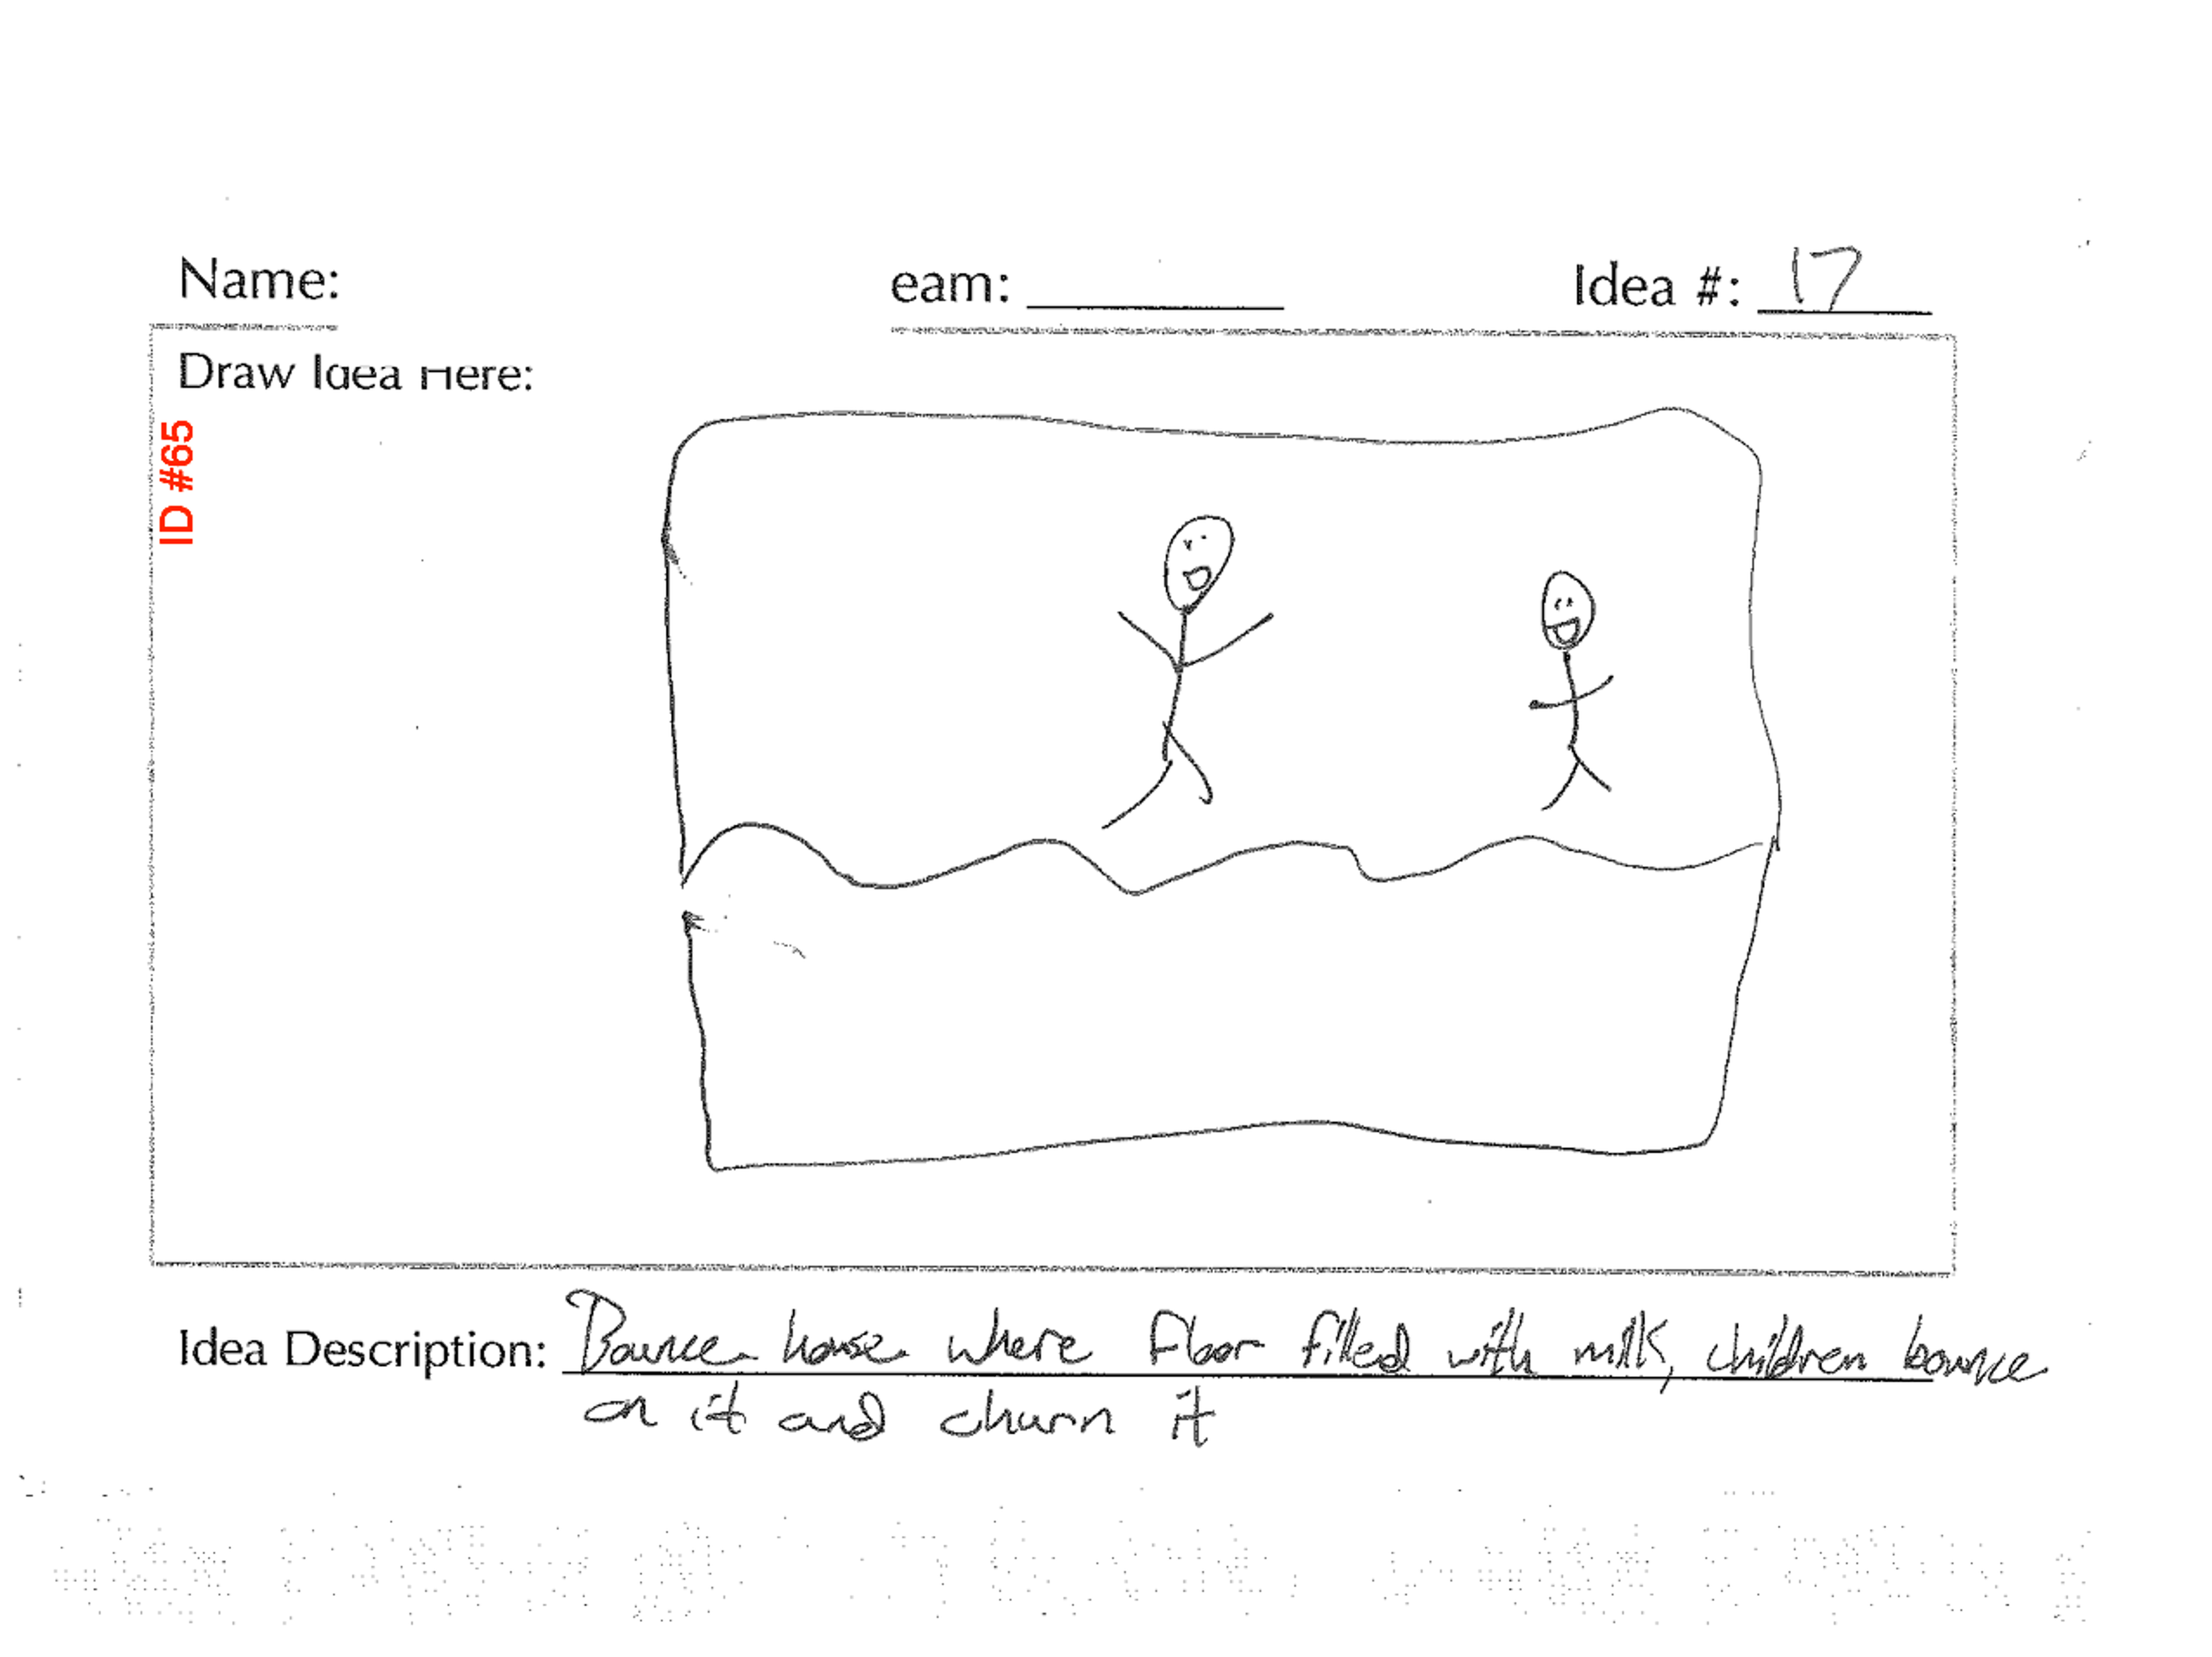 Name:
eam: Idea #: 17
Draw Idea Here:
ID #65
Idea Description: Bounce house where floor filled with milk, children bounce
on it and churn it